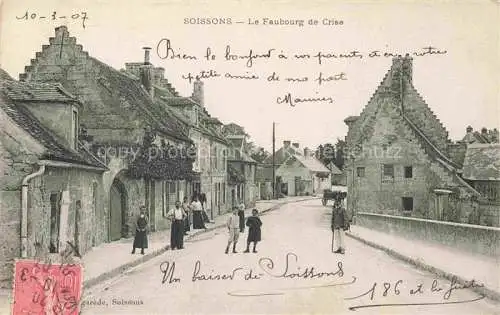 10-3-07
SOISSONS – Le Faubourg de Crise
Bien le bonjour à vos parents et à votre
petite amie de ma part
Maurice
Un baiser de Soissons
186 et la fuite
SOISSONS
agarde, Soissons